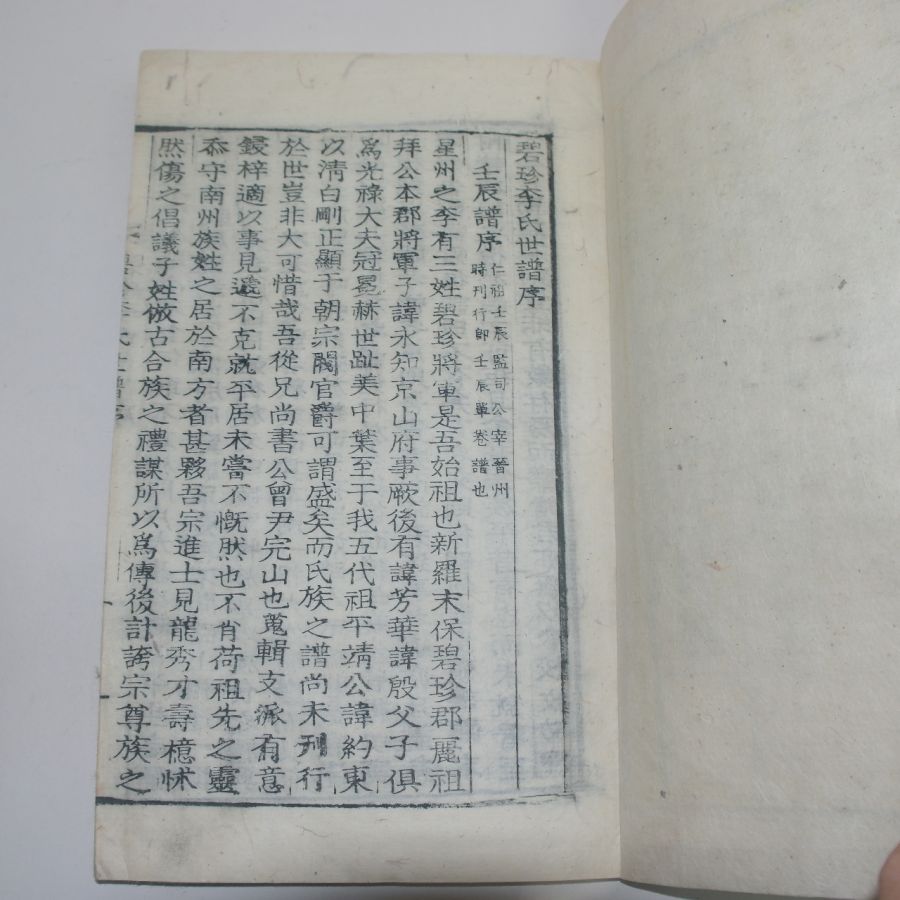 碧珍李氏世譜序
壬辰譜序
仁祖壬辰監司公宰晉州
時刊行卽壬辰單卷譜也
星州之李有三姓碧珍將軍是吾始祖也新羅末保碧珍郡麗祖
拜公本郡將軍子諱永知京山府事厥後有諱芳華諱殷父子俱
爲光祿大夫冠冕赫世趾美中葉至于我五代祖平靖公諱約東
以淸白剛正顯于朝宗閥官爵可謂盛矣而氏族之譜尙未刋行
於世豈非大可惜哉吾從兄尙書公曾尹完山也蒐輯支派有意
鋟梓適以事見遞不克就平居未嘗不慨然也不肖荷祖先之靈
忝守南州族姓之居於南方者甚夥吾宗進士見龍秀才壽檍怵
然傷之倡議子姓倣古合族之禮謀所以爲傳後計誇宗尊族之